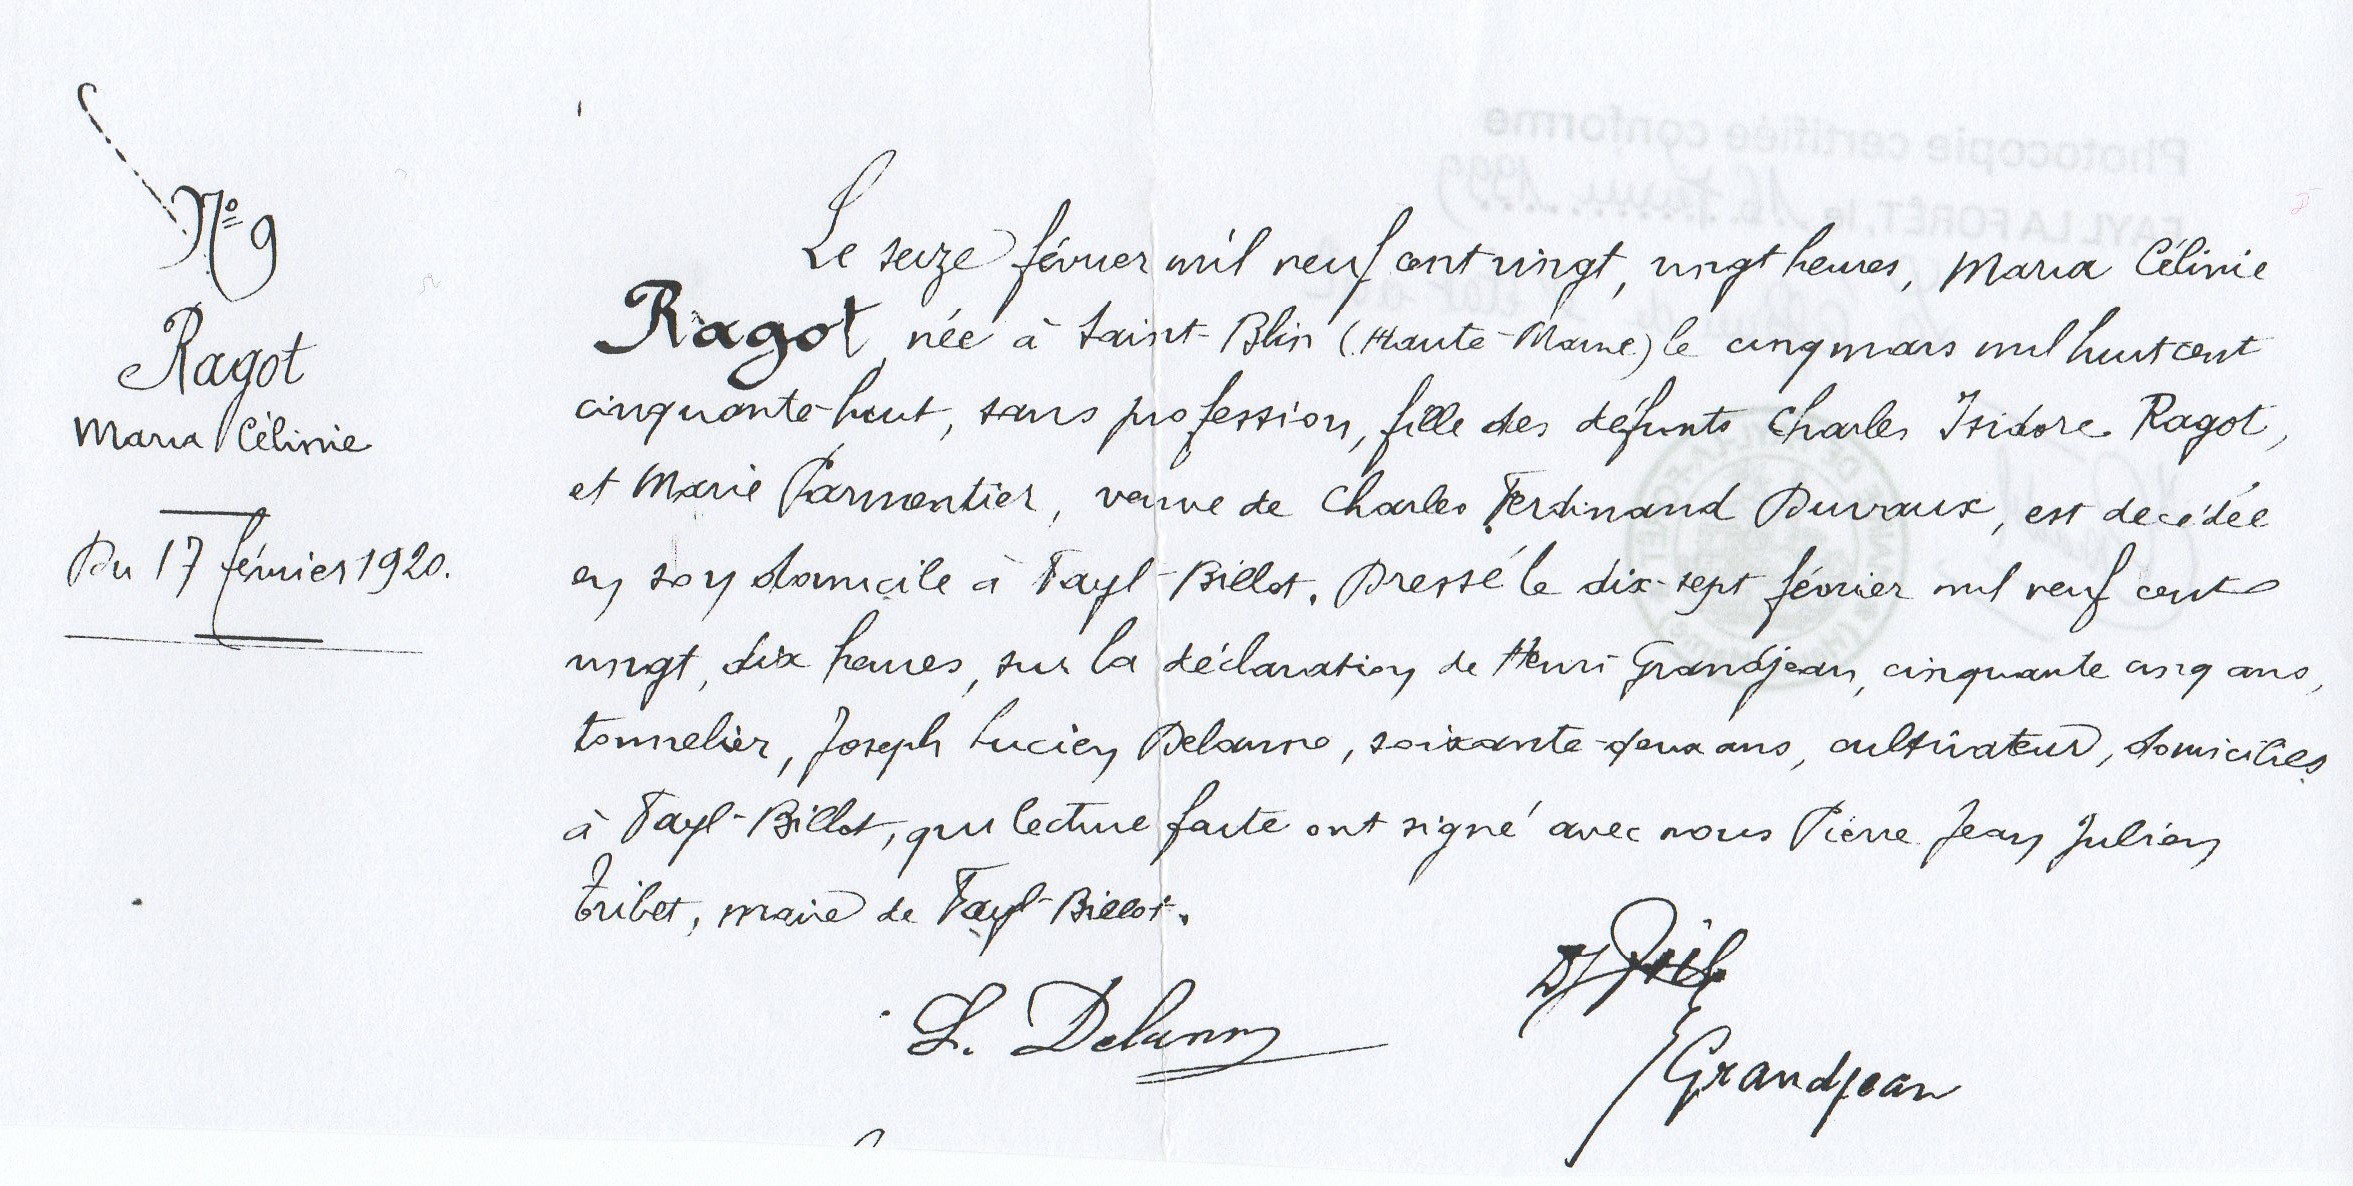 N° 9
Ragot
Maria Célinie
Du 17 février 1920.
Le seize février mil neuf cent vingt, vingt heures, Maria Célinie
Ragot, née à Saint-Blin (Haute-Marne) le cinq mars mil huit cent
cinquante-huit, sans profession, fille des défunts Charles Isidore Ragot,
et Marie Parmentier, veuve de Charles Ferdinand Duvaux, est decédée
en son domicile à Fayl-Billot. Dressé le dix-sept février mil neuf cent
vingt, dix heures, sur la déclaration de Henri Grandjean, cinquante cinq ans,
tonnelier, Joseph Lucien Delanne, soixante-deux ans, cultivateur, domiciliés
à Fayl-Billot, qui lecture faite ont signé avec nous Pierre Jean Julien
Tribet, maire de Fayl-Billot.
L. Delanne
Grandjean
Photocopie certifiée conforme
FAYL LA FORÊT, le 16 1999